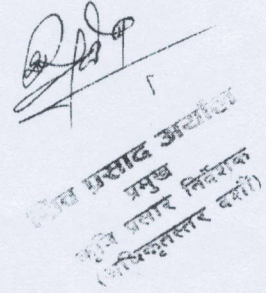 शिव प्रसाद अर्याल
प्रमुख
कृषि प्रसार निर्देशक
(अधिकृतस्तर दशौं)